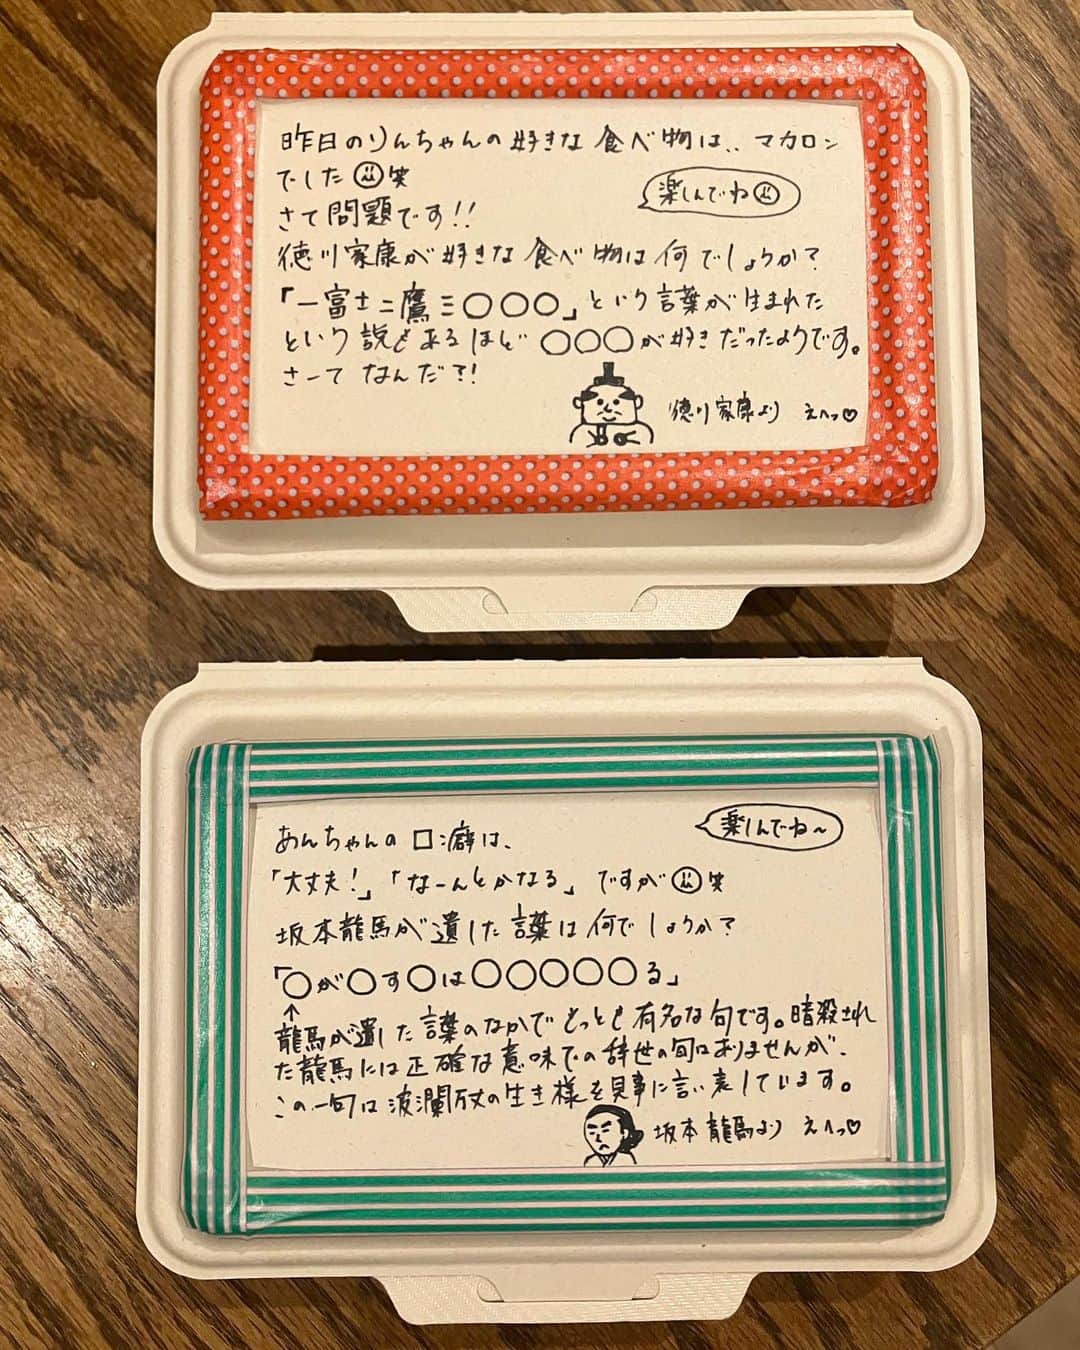 昨日のりんちゃんの好きな食べ物は、、マカロン
でした笑
楽しんでね
さて問題です!!
徳川家康が好きな食べ物は何でしょうか?
「一富士二鷹三〇〇〇」という言葉が生まれた
という説もあるほど〇〇〇が好きだったようです。
さーてなんだ?!
徳川家康より えへっ♡
楽しんでね〜
あんちゃんの口癖は、
「大丈夫!」「なーんとかなる」ですが笑
坂本龍馬が遺した言葉は何でしょうか?
「〇が〇す〇は〇〇〇〇〇る」
↑
龍馬が遺した言葉のなかでもっとも有名な句です。暗殺され
た龍馬には正確な意味での辞世の句はありませんが、
この一句は波瀾万丈の生き様を見事に言い表しています。
坂本龍馬より えへっ♡